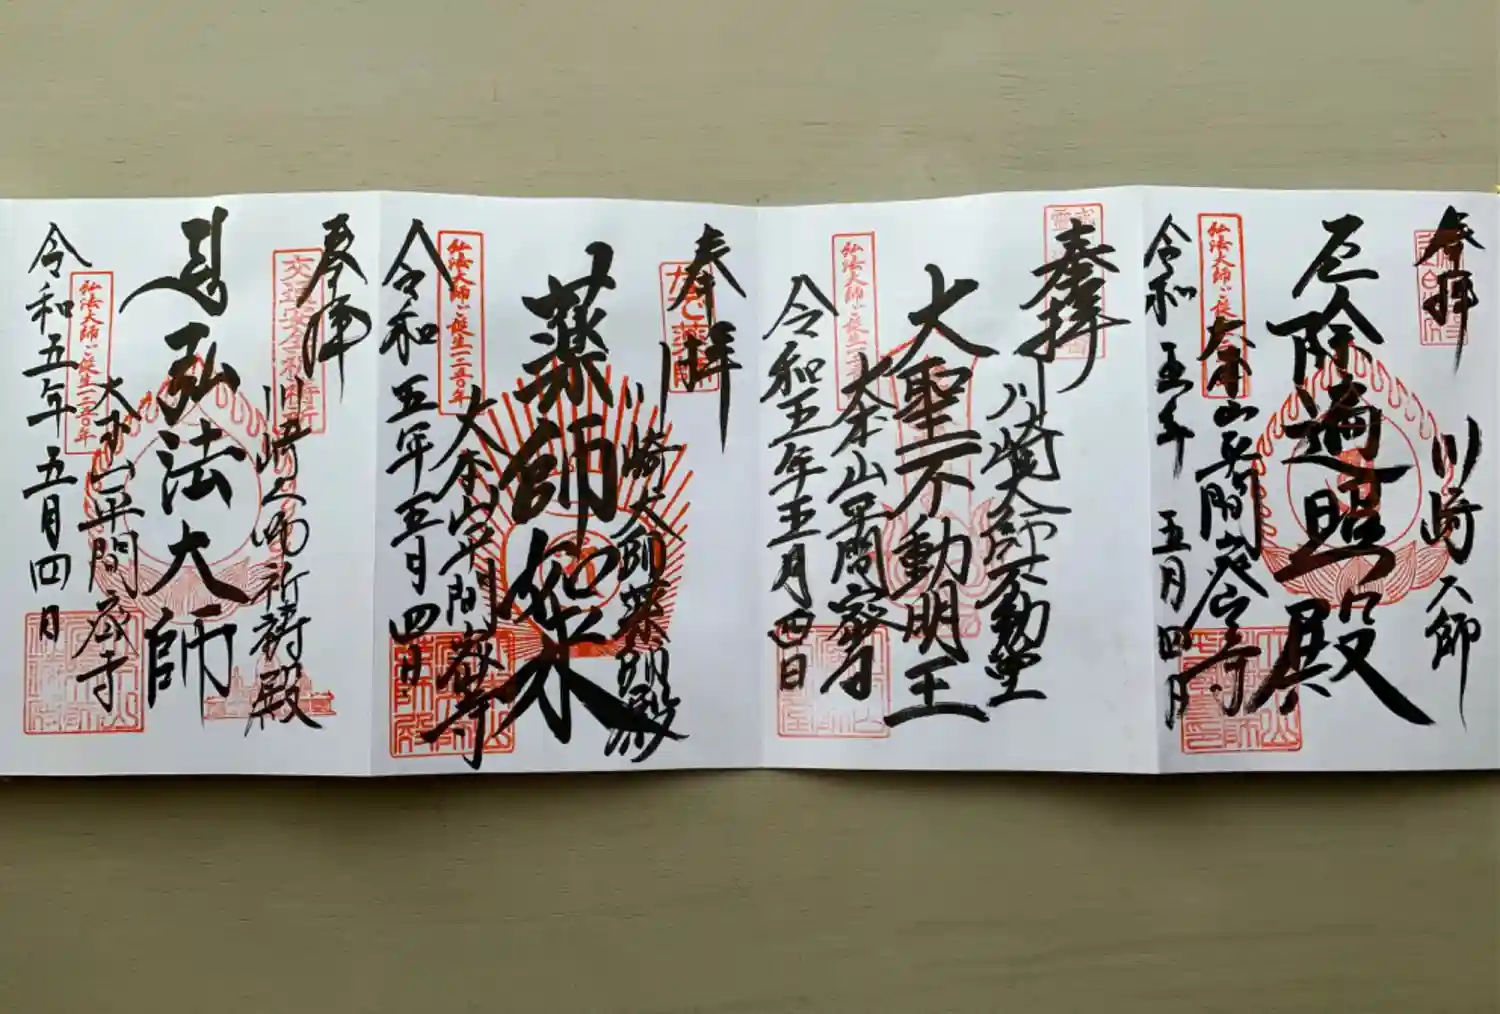 奉拝
川崎大師
厄除遍照殿
大本山平間寺
弘法大師ご誕生一二五〇年
令和五年五月四日
奉拝
川崎大師不動堂
大聖不動明王
大本山平間密寺
弘法大師ご誕生一二五〇年
令和五年五月四日
奉拝
かなで薬師
川崎大師薬師殿
薬師如来
大本山平間密寺
弘法大師ご誕生一二五〇年
令和五年五月四日
奉拝
交通安全祈祷所
川崎大師祈祷殿
弘法大師
大本山平間密寺
弘法大師ご誕生一二五〇年
令和五年五月四日